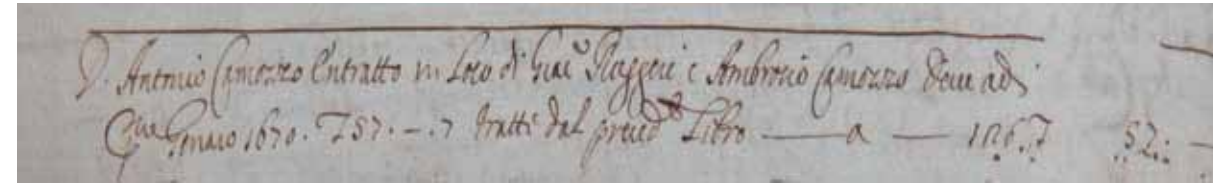 D. Antonio Camozzo Entratto in Loco di Giac.º Ruggeri e Ambrosio Camozzo deve adi
Genaro 1670. 57. –. 7 tratti dal preced.te Libro — a — 126. 57. –